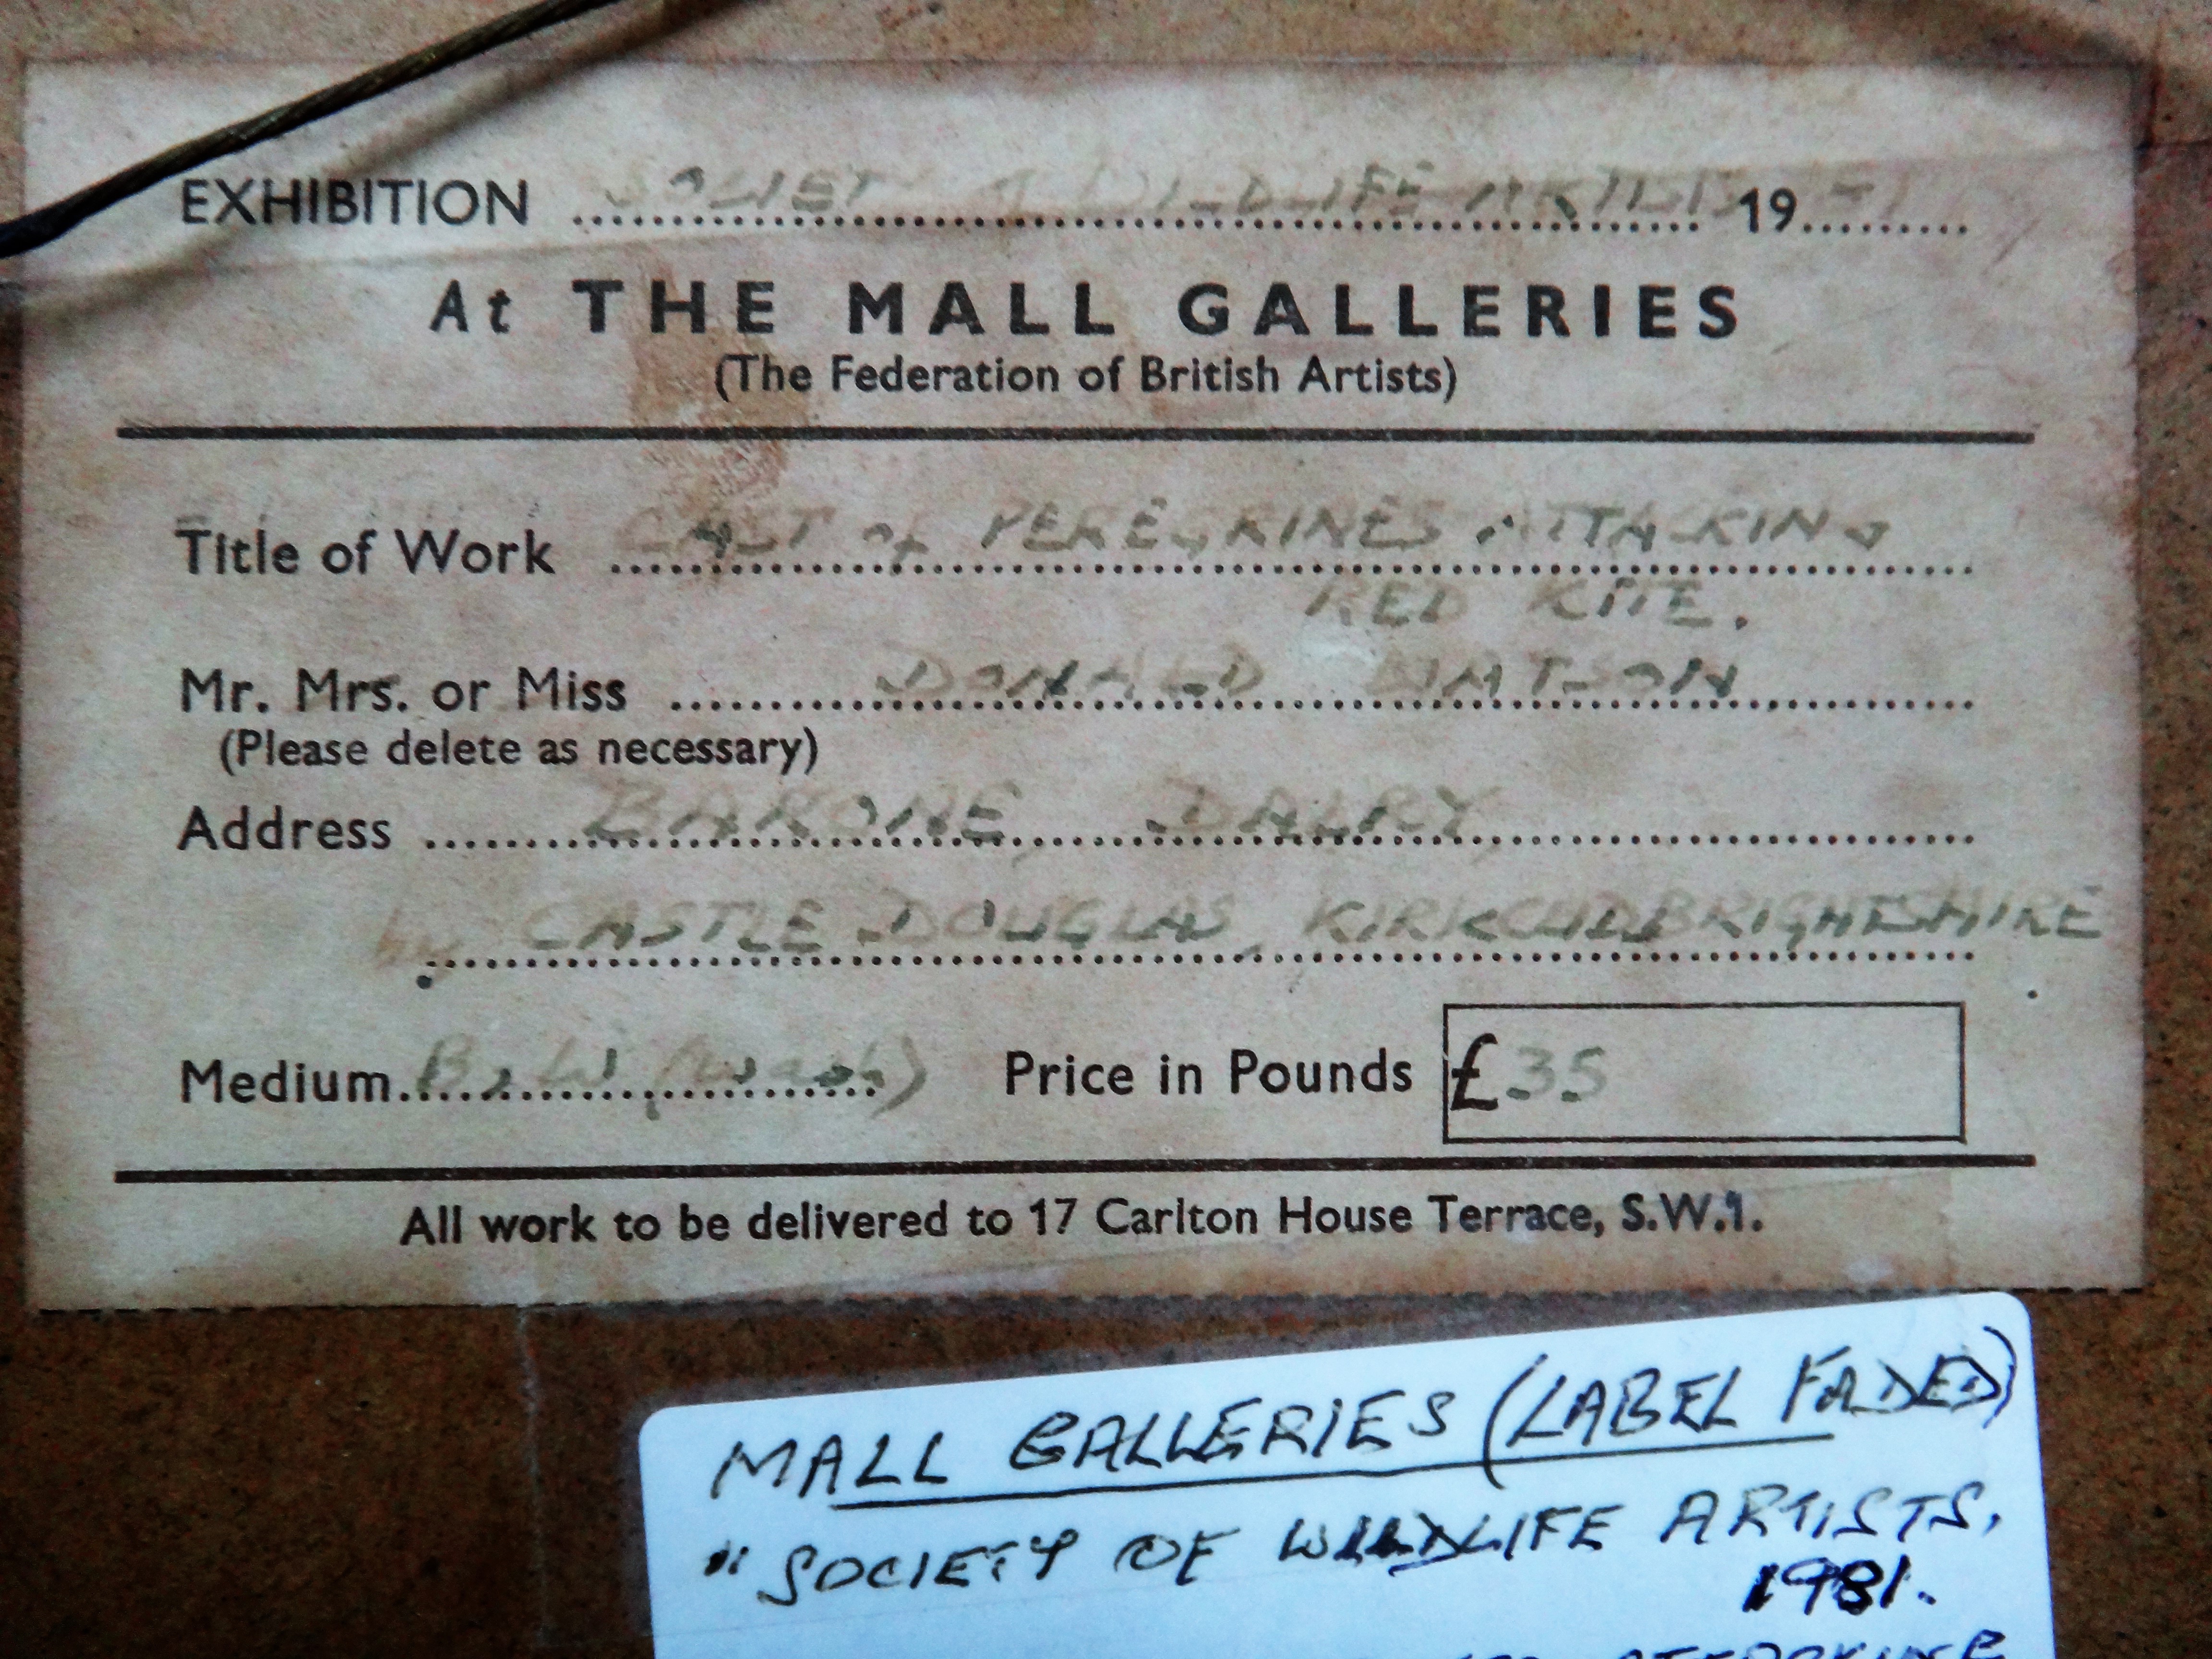 EXHIBITION SOCIETY WILDLIFE ARTISTS 19
At THE MALL GALLERIES
(The Federation of British Artists)
Title of Work CAST of PEREGRINES ATTACKING
RED KITE.
Mr. Mrs. or Miss DONALD WATSON
(Please delete as necessary)
Address BARONE DALRY
by CASTLE DOUGLAS, KIRKCUDBRIGHTSHIRE
Medium B & W (wash) Price in Pounds £35
All work to be delivered to 17 Carlton House Terrace, S.W.1.
MALL GALLERIES (LABEL FADED)
"SOCIETY OF WILDLIFE ARTISTS,
1981.